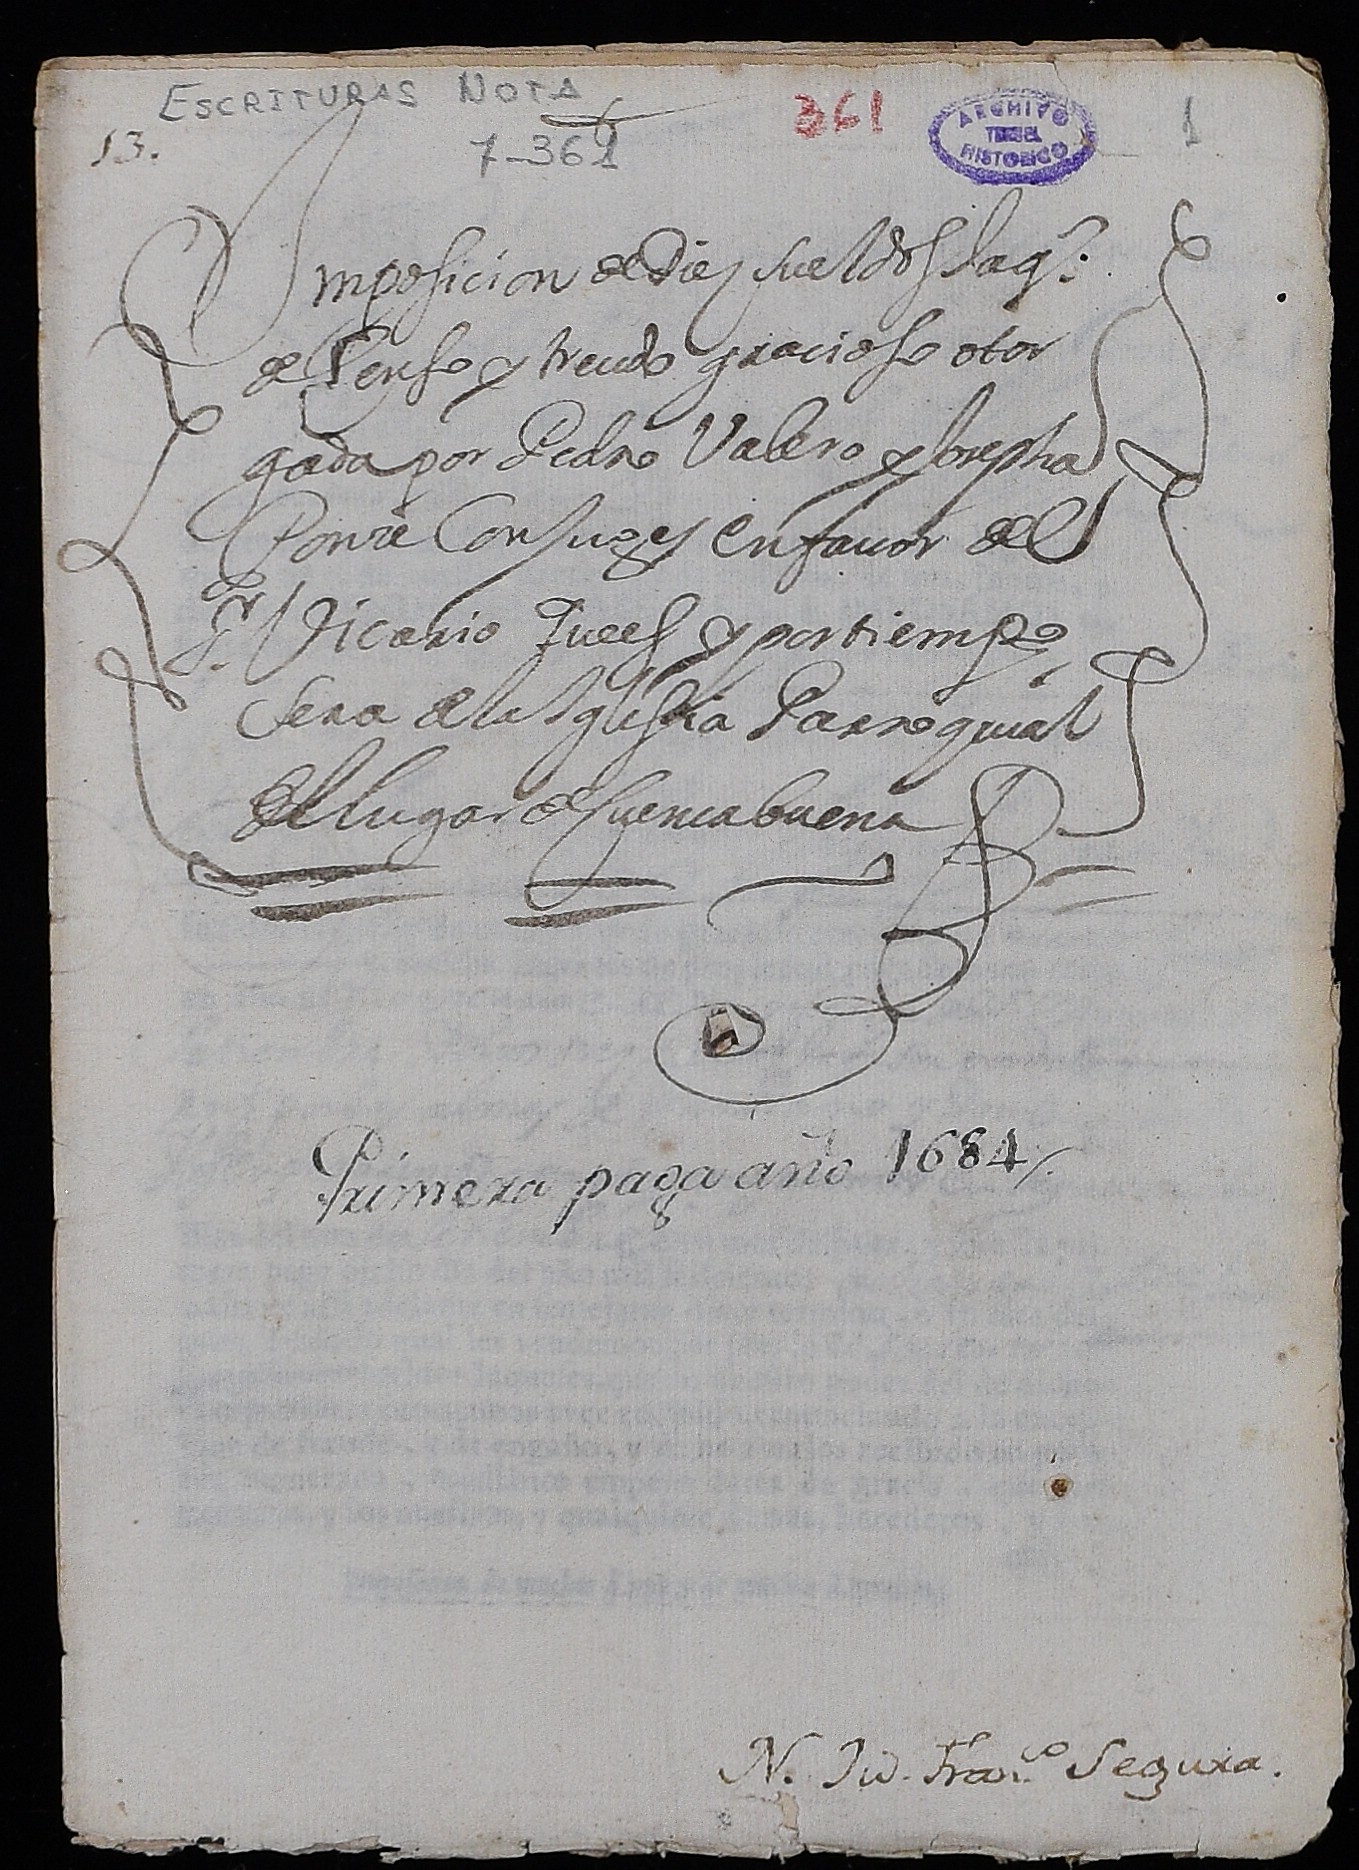 ESCRITURAS NOTA
13.
7-361
361
ARCHIVO
TERUEL
HISTORICO
1
Imposicion de Diez sueldos Jaqs.
de Censo y treudo gracioso otor
gada por Pedro Valero y Josepha
Ponze Conjuges en favor del
Sr. Vicario que es y por tiempo
sera de la Iglesia Parroquial
del lugar de Cuencabuena
Primera paga año 1684
N. Ju. Franco. Segura.